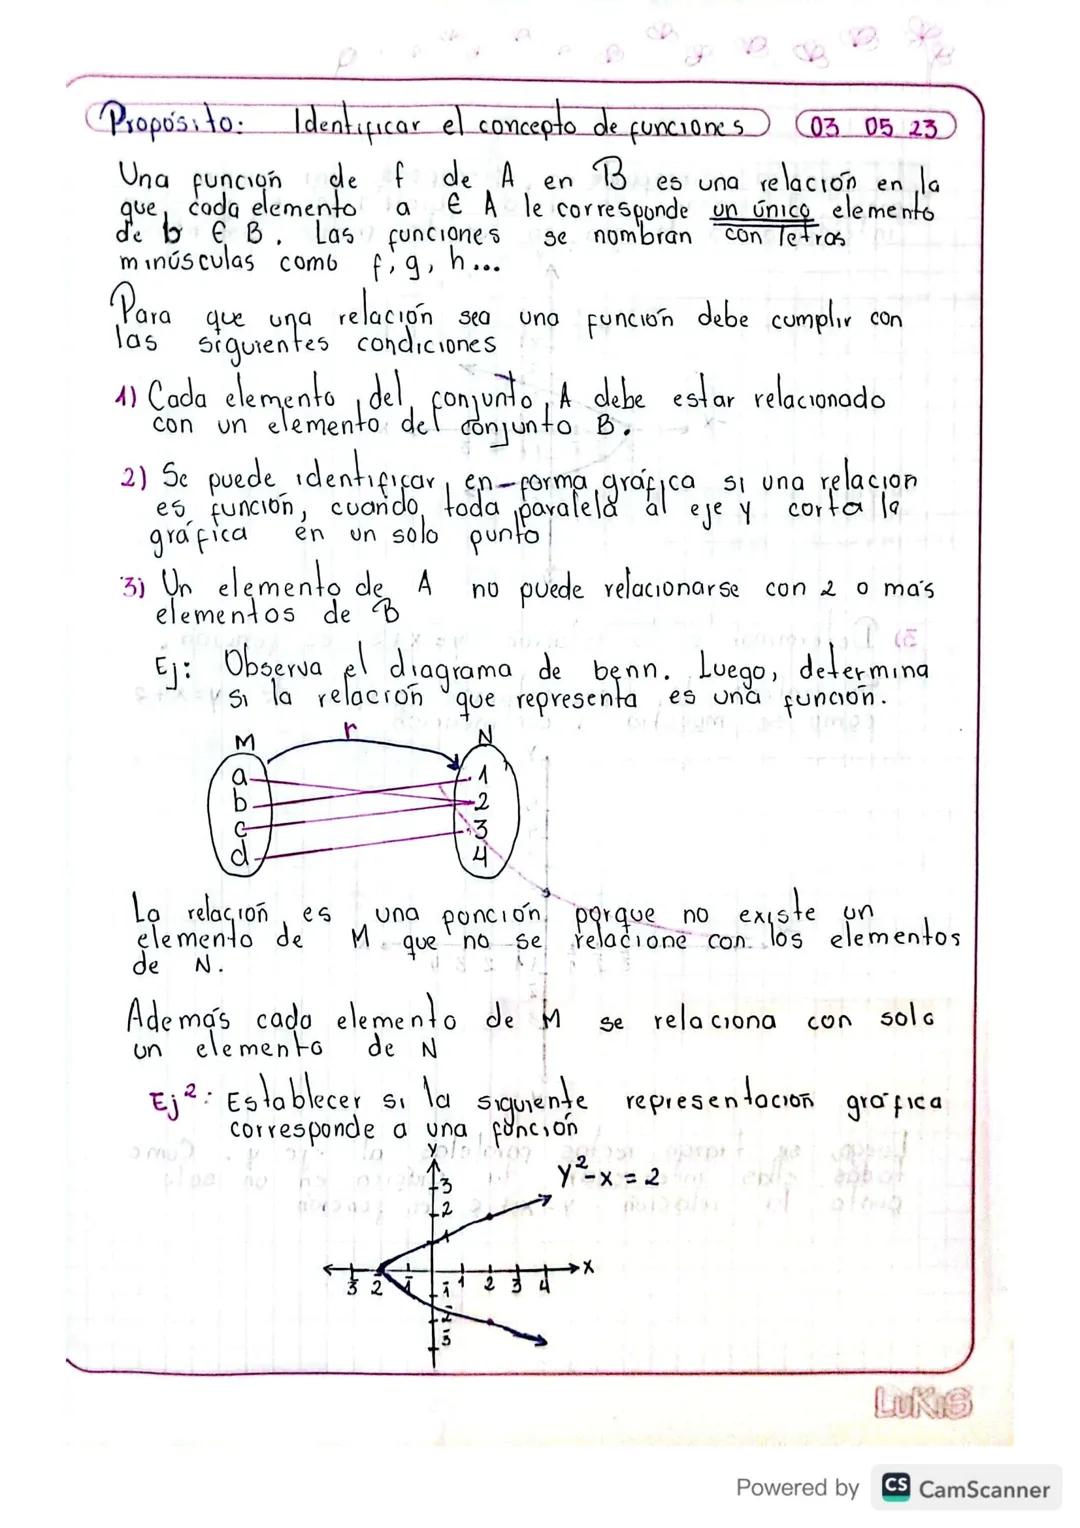 Propósito: Identificar el concepto de funciones 03 05 23
Una función de f de A en B es una relación en la
que, cada elemento a ∈ A le corresponde un único elemento
de b ∈ B. Las funciones se nombran con letras
minúsculas como f, g, h...
Para que una relación sea una función debe cumplir con
las siguientes condiciones
1) Cada elemento del conjunto A debe estar relacionado
con un elemento del conjunto B.
2) Se puede identificar en forma gráfica si una relacion
es función, cuando toda paralela al eje y corta la
gráfica en un solo punto
3) Un elemento de A no puede relacionarse con 2 o más
elementos de B
Ej: Observa el diagrama de benn. Luego, determina
si la relación que representa es una función.
M r N
a 1
b 2
c 3
d 4
La relación es una ponción porque no existe un
elemento de M que no se relacione con los elementos
de N.
Además cada elemento de M se relaciona con solo
un elemento de N
Ej²: Establecer si la siguiente representación gráfica
corresponde a una función
y
y²-x = 2
3
2
1
3 2 1 1 2 3 4 x
1
2
3
LUKIS
Powered by CS CamScanner